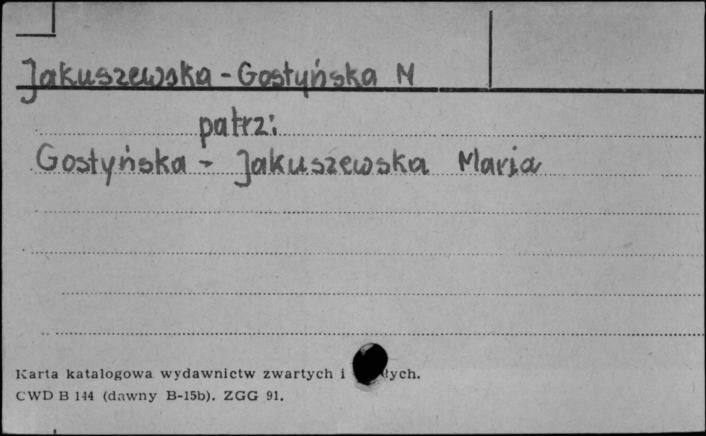 Jakuszewska - Gostyńska M
patrz:
Gostyńska - Jakuszewska Maria
Karta katalogowa wydawnictw zwartych i
CWD B 144 (dawny B-15b). ZGG 91.